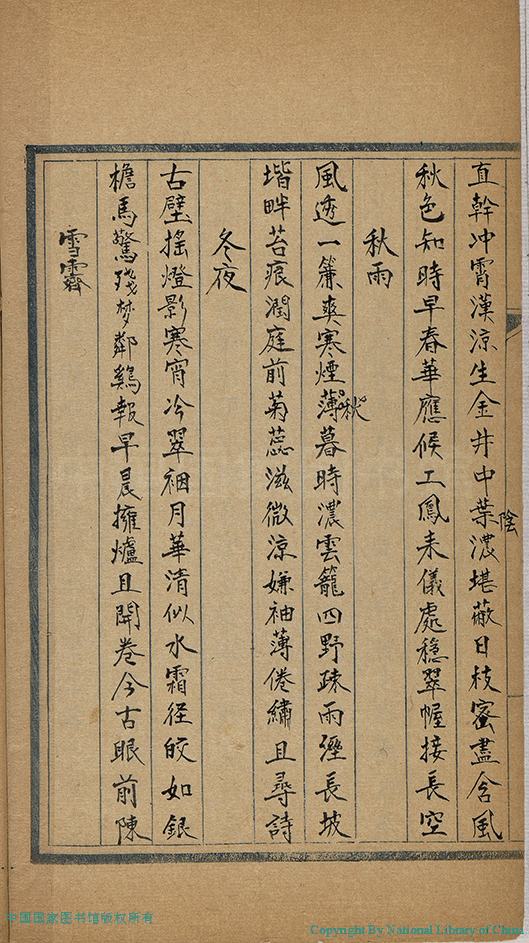 直幹冲霄漢涼生金井中葉濃堪蔽日枝蜜盡含風
陰
秋色知時早春華應候工鳳来儀處穏翠幄接長空
秋雨
風透一簾爽寒煙薄暮時濃雲籠四野疎雨溼長坡
秋
堦畔苔痕潤庭前菊蕊滋微涼嫌袖薄倦繡且尋詩
冬夜
古壁摇燈影寒宵冷翠裀月華清似水霜径皎如銀
檐馬驚殘梦鄰鷄報早晨擁爐且開卷今古眼前陳
雪霽
中国国家图书馆版权所有
Copyright By National Library of China